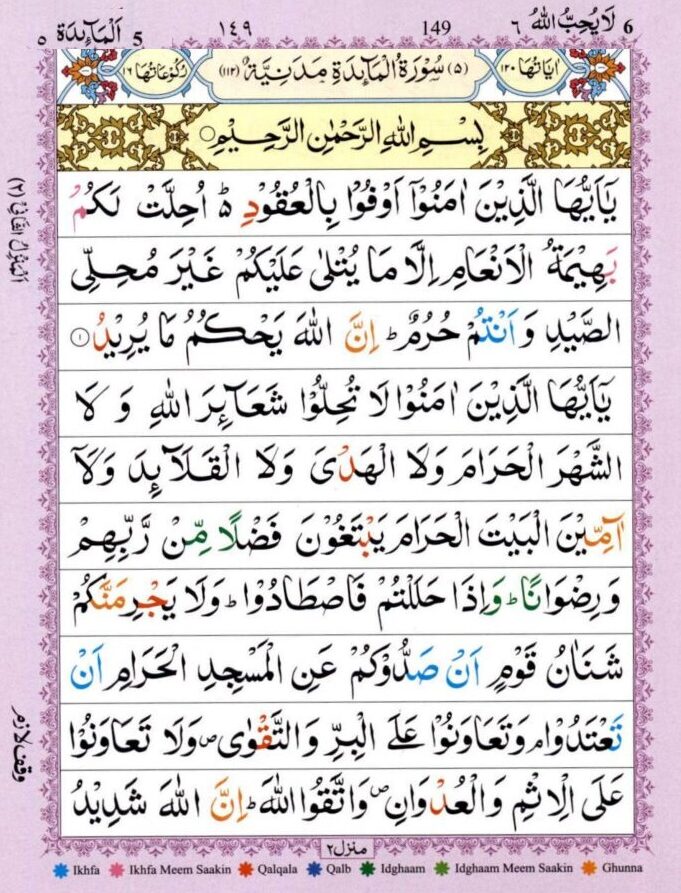 6 لَا يُحِبُّ اللّٰهُ ٦ 149 ١٤٩ 5 اَلْمَآئِدَة ٥
اٰيَاتُهَا ١٢٠ (٥) سُوْرَةُ الْمَآئِدَةِ مَدَنِيَّةٌ (١١٢) رُكُوْعَاتُهَا ١٦
بِسْمِ اللّٰهِ الرَّحْمٰنِ الرَّحِيْمِ ○
يٰۤاَيُّهَا الَّذِيْنَ اٰمَنُوْۤا اَوْفُوْا بِالْعُقُوْدِ ؕ اُحِلَّتْ لَكُمْ
بَهِيْمَةُ الْاَنْعَامِ اِلَّا مَا يُتْلٰى عَلَيْكُمْ غَيْرَ مُحِلِّى
الصَّيْدِ وَ اَنْتُمْ حُرُمٌ ؕ اِنَّ اللّٰهَ يَحْكُمُ مَا يُرِيْدُ ١
يٰۤاَيُّهَا الَّذِيْنَ اٰمَنُوْا لَا تُحِلُّوْا شَعَآئِرَ اللّٰهِ وَ لَا
الشَّهْرَ الْحَرَامَ وَلَا الْهَدْىَ وَلَا الْقَلَآئِدَ وَلَاۤ
آٰمِّيْنَ الْبَيْتَ الْحَرَامَ يَبْتَغُوْنَ فَضْلًا مِّنْ رَّبِّهِمْ
وَرِضْوَانًا ؕ وَاِذَا حَلَلْتُمْ فَاصْطَادُوْا ؕ وَلَا يَجْرِمَنَّكُمْ
شَنَاٰنُ قَوْمٍ اَنْ صَدُّوْكُمْ عَنِ الْمَسْجِدِ الْحَرَامِ اَنْ
تَعْتَدُوْا ۘ وَتَعَاوَنُوْا عَلَى الْبِرِّ وَالتَّقْوٰى ۪ وَلَا تَعَاوَنُوْا
عَلَى الْاِثْمِ وَالْعُدْوَانِ ۪ وَاتَّقُوا اللّٰهَ ؕ اِنَّ اللّٰهَ شَدِيْدُ
اَلْمَنْزِلُ الثَّانِيْ (٢)
وقف لازم
منزل ٢
Ikhfa Ikhfa Meem Saakin Qalqala Qalb Idghaam Idghaam Meem Saakin Ghunna